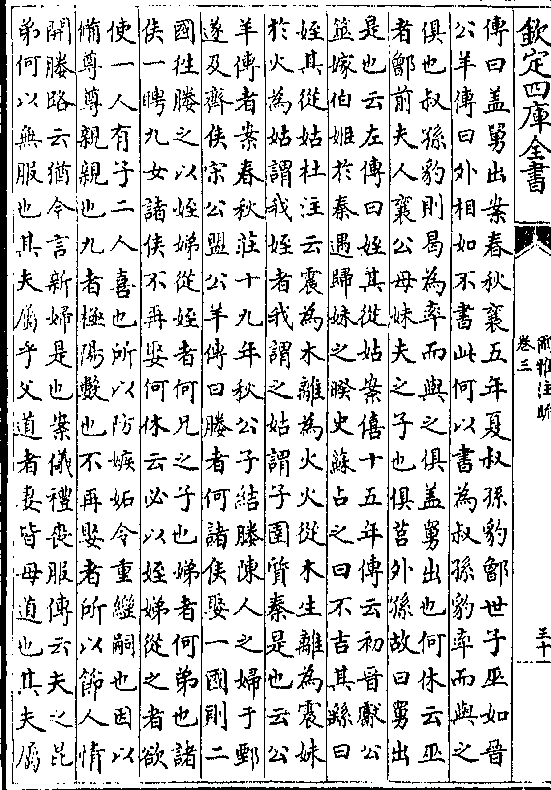 欽定四庫全書
爾雅注疏
卷三
三十一
傳曰蓋舅出案春秋襄五年夏叔孫豹鄫世子巫如晉
公羊傳曰外相如不書此何以書為叔孫豹率而與之
俱也叔孫豹則曷為率而與之俱蓋舅出也何休云巫
者鄫前夫人襄公母妹夫之子也俱莒外孫故曰舅出
是也云左傳曰姪其從姑案僖十五年傳云初晉獻公
筮嫁伯姬於秦遇歸妹之睽史蘇占之曰不吉其繇曰
姪其從姑杜注云震為木離為火火從木生離為震妹
於火為姑謂我姪者我謂之姑謂子圉質秦是也云公
羊傳者案春秋莊十九年秋公子結媵陳人之婦于鄄
遂及齊侯宋公盟公羊傳曰媵者何諸侯娶一國則二
國往媵之以姪娣從姪者何兄之子也娣者何弟也諸
侯一聘九女諸侯不再娶何休云必以姪娣從之者欲
使一人有子二人喜也所以防嫉妬令重繼嗣也因以
備尊尊親親也九者極陽數也不再娶者所以節人情
開媵路云猶今言新婦是也案儀禮喪服傳云夫之昆
弟何以無服也其夫屬乎父道者妻皆母道也其夫屬